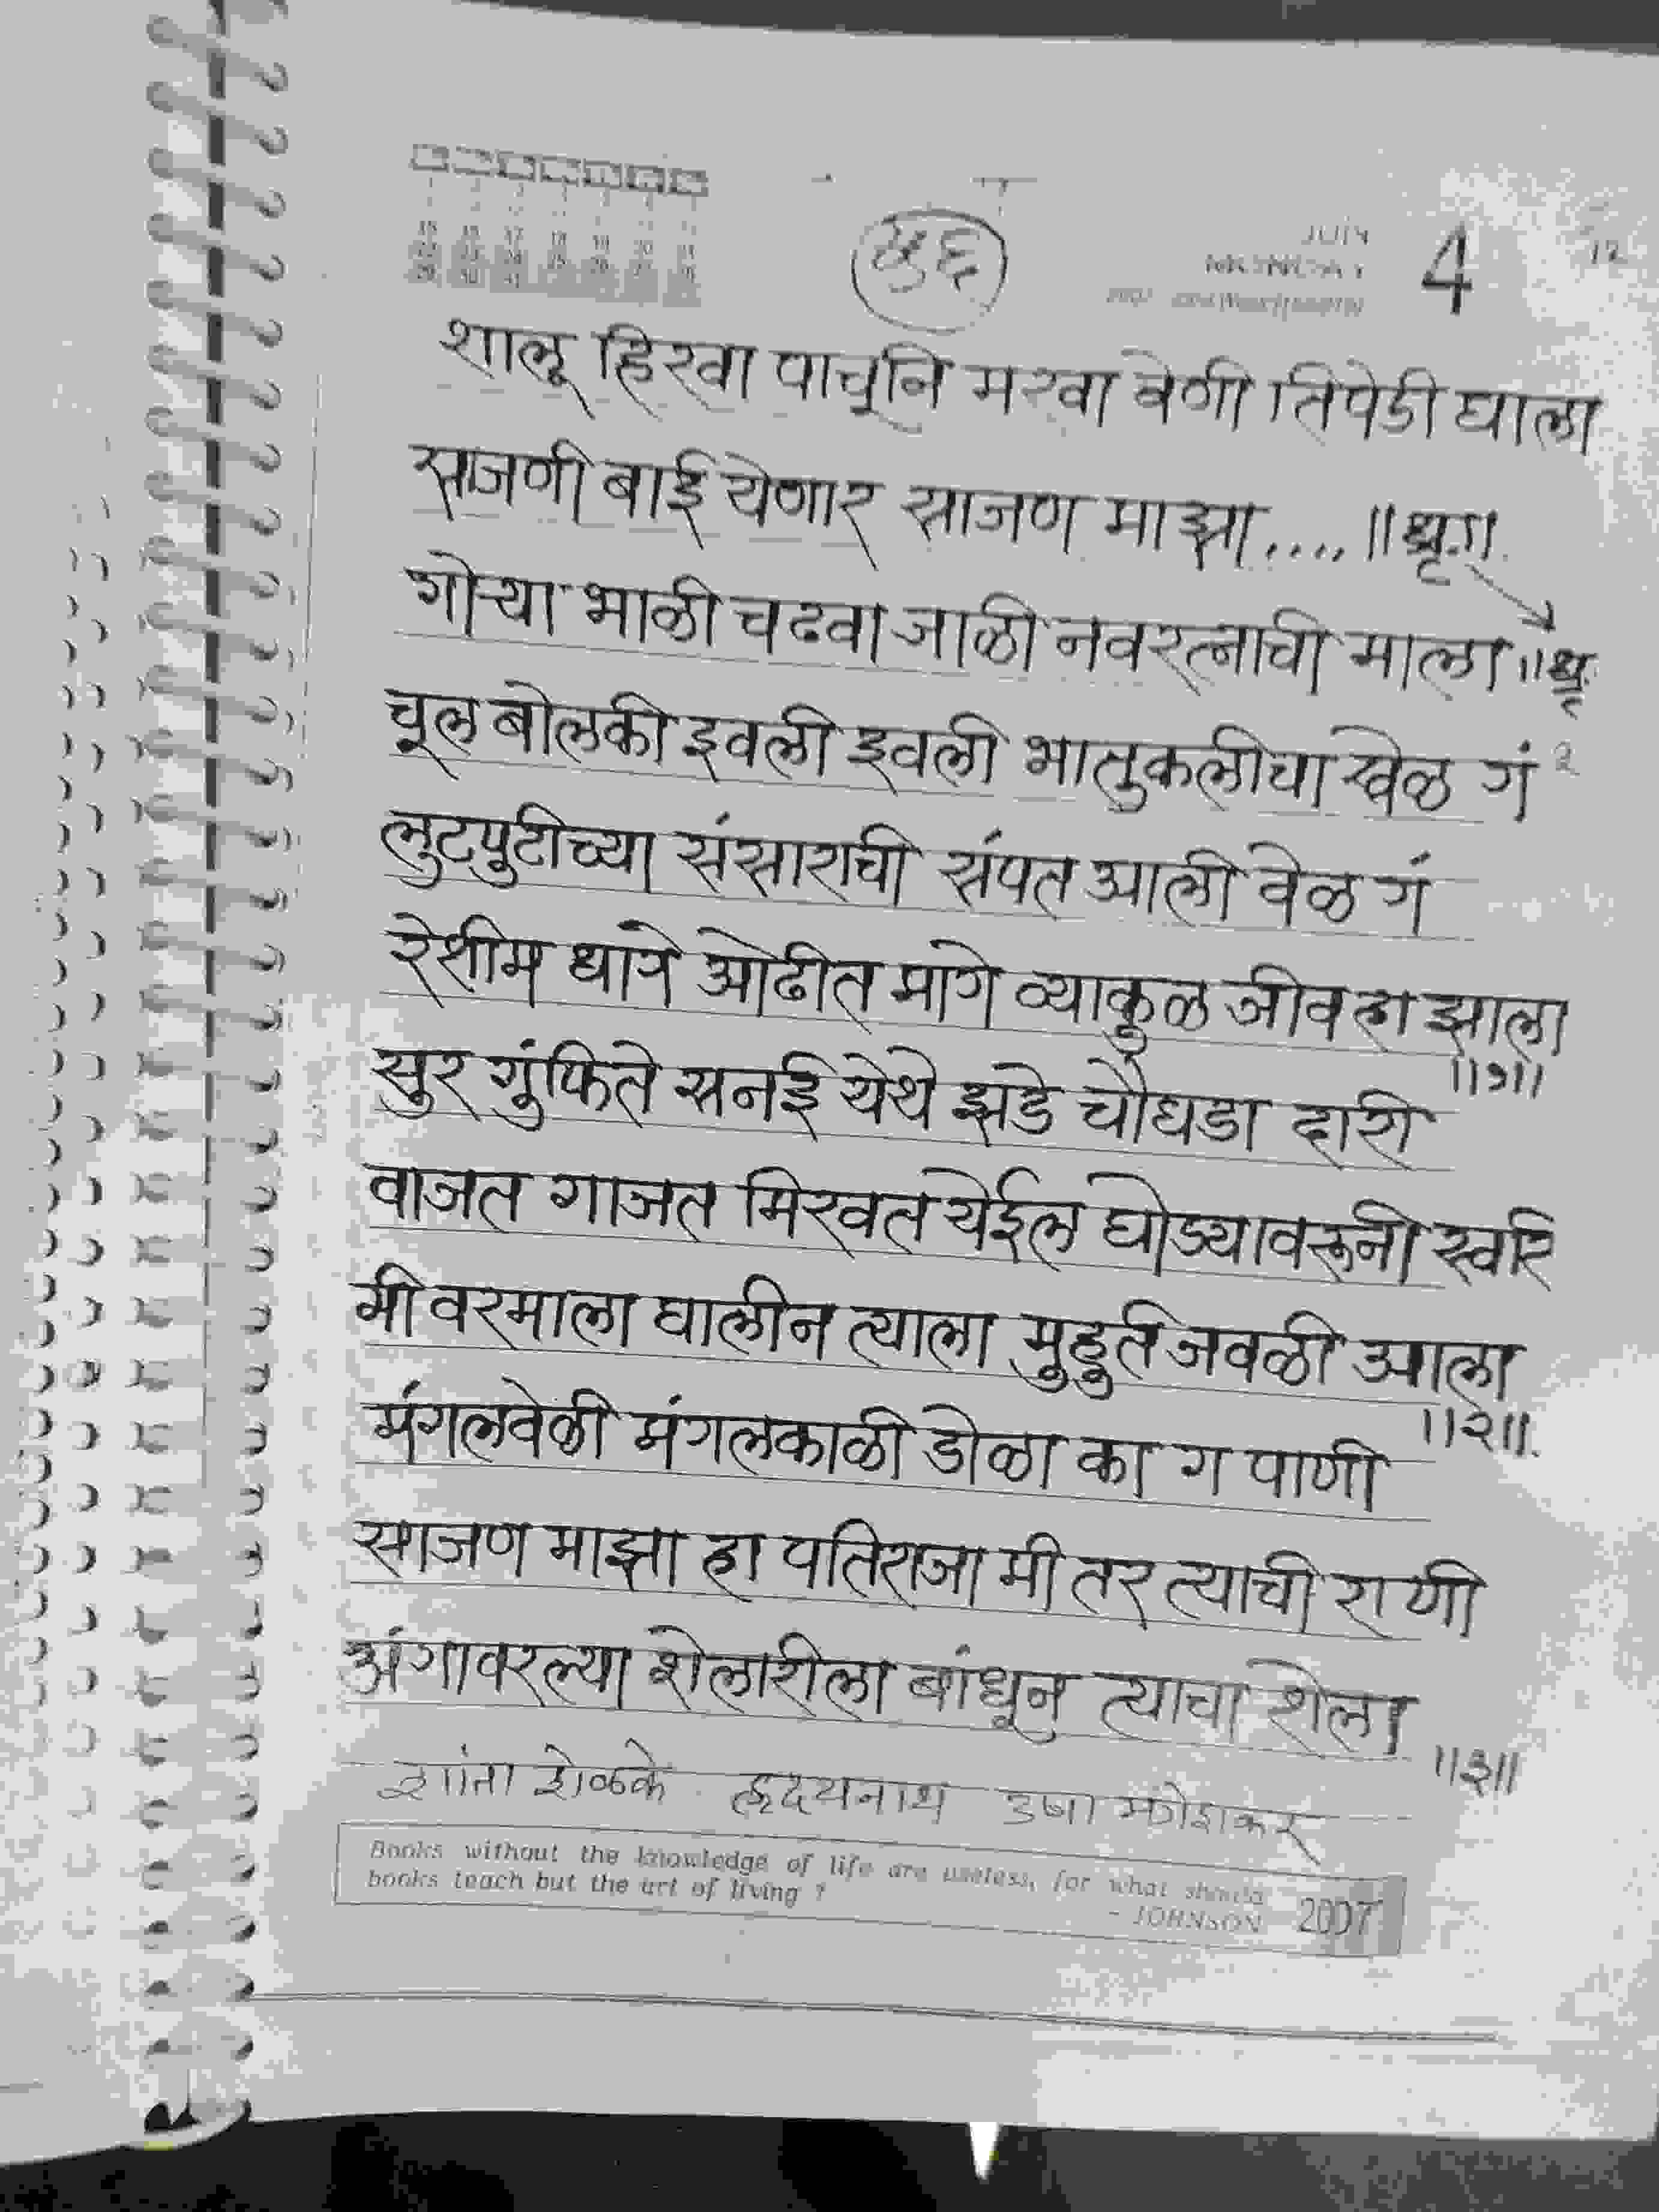 JULY 4
शालू हिरवा पाचूनि मरवा वेणी तिपेडी घाला
साजणी बाई येणार साजण माझा.... ॥धृ.॥
गोऱ्या भाळी चढवा जाळी नवरत्नाची माला ॥धृ॥
चूल बोलकी इवली इवली भातुकलीचा खेळ गं २
लुटपुटीच्या संसाराची संपत आली वेळ गं
रेशीम धागे ओढीत मागे व्याकुळ जीव हा झाला
॥१॥
सुर गुंफिते सनई येथे झडे चौघडा दारी
वाजत गाजत मिरवत येईल घोड्यावरूनी स्वारि
मी वरमाला घालीन त्याला मुहुर्त जवळी आला
॥२॥
मंगलवेळी मंगलकाळी डोळा का ग पाणी
साजण माझा हा पतिराजा मी तर त्याची राणी
अंगावरल्या शेलारीला बांधून त्याचा शेला
॥३॥
शांता शेळके हृदयनाथ उषा मंगेशकर
Books without the knowledge of life are useless, for what should
books teach but the art of living ?
- JOHNSON 2007